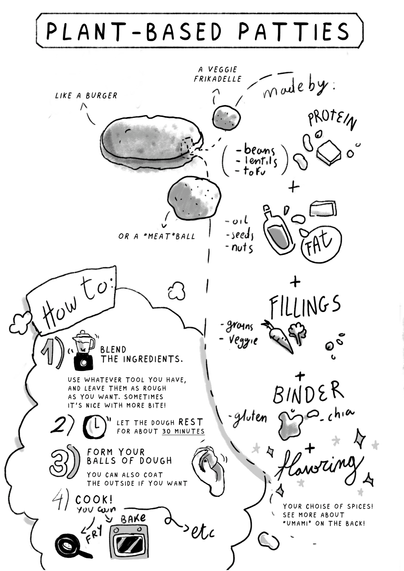 PLANT-BASED PATTIES
A VEGGIE
FRIKADELLE
LIKE A BURGER
made by:
PROTEIN
- beans
- lentils
- tofu
+
OR A "MEAT"BALL
- oil
- seeds
- nuts
FAT
+
FILLINGS
- grains
- veggie
+
BINDER
- gluten
- chia
+
flavoring
YOUR CHOISE OF SPICES!
SEE MORE ABOUT
"UMAMI" ON THE BACK!
How to:
1) BLEND
THE INGREDIENTS.
USE WHATEVER TOOL YOU HAVE,
AND LEAVE THEM AS ROUGH
AS YOU WANT. SOMETIMES
IT'S NICE WITH MORE BITE!
2) LET THE DOUGH REST
FOR ABOUT 30 MINUTES
3) FORM YOUR
BALLS OF DOUGH
YOU CAN ALSO COAT
THE OUTSIDE IF YOU WANT
4) COOK!
you can
FRY
BAKE
etc